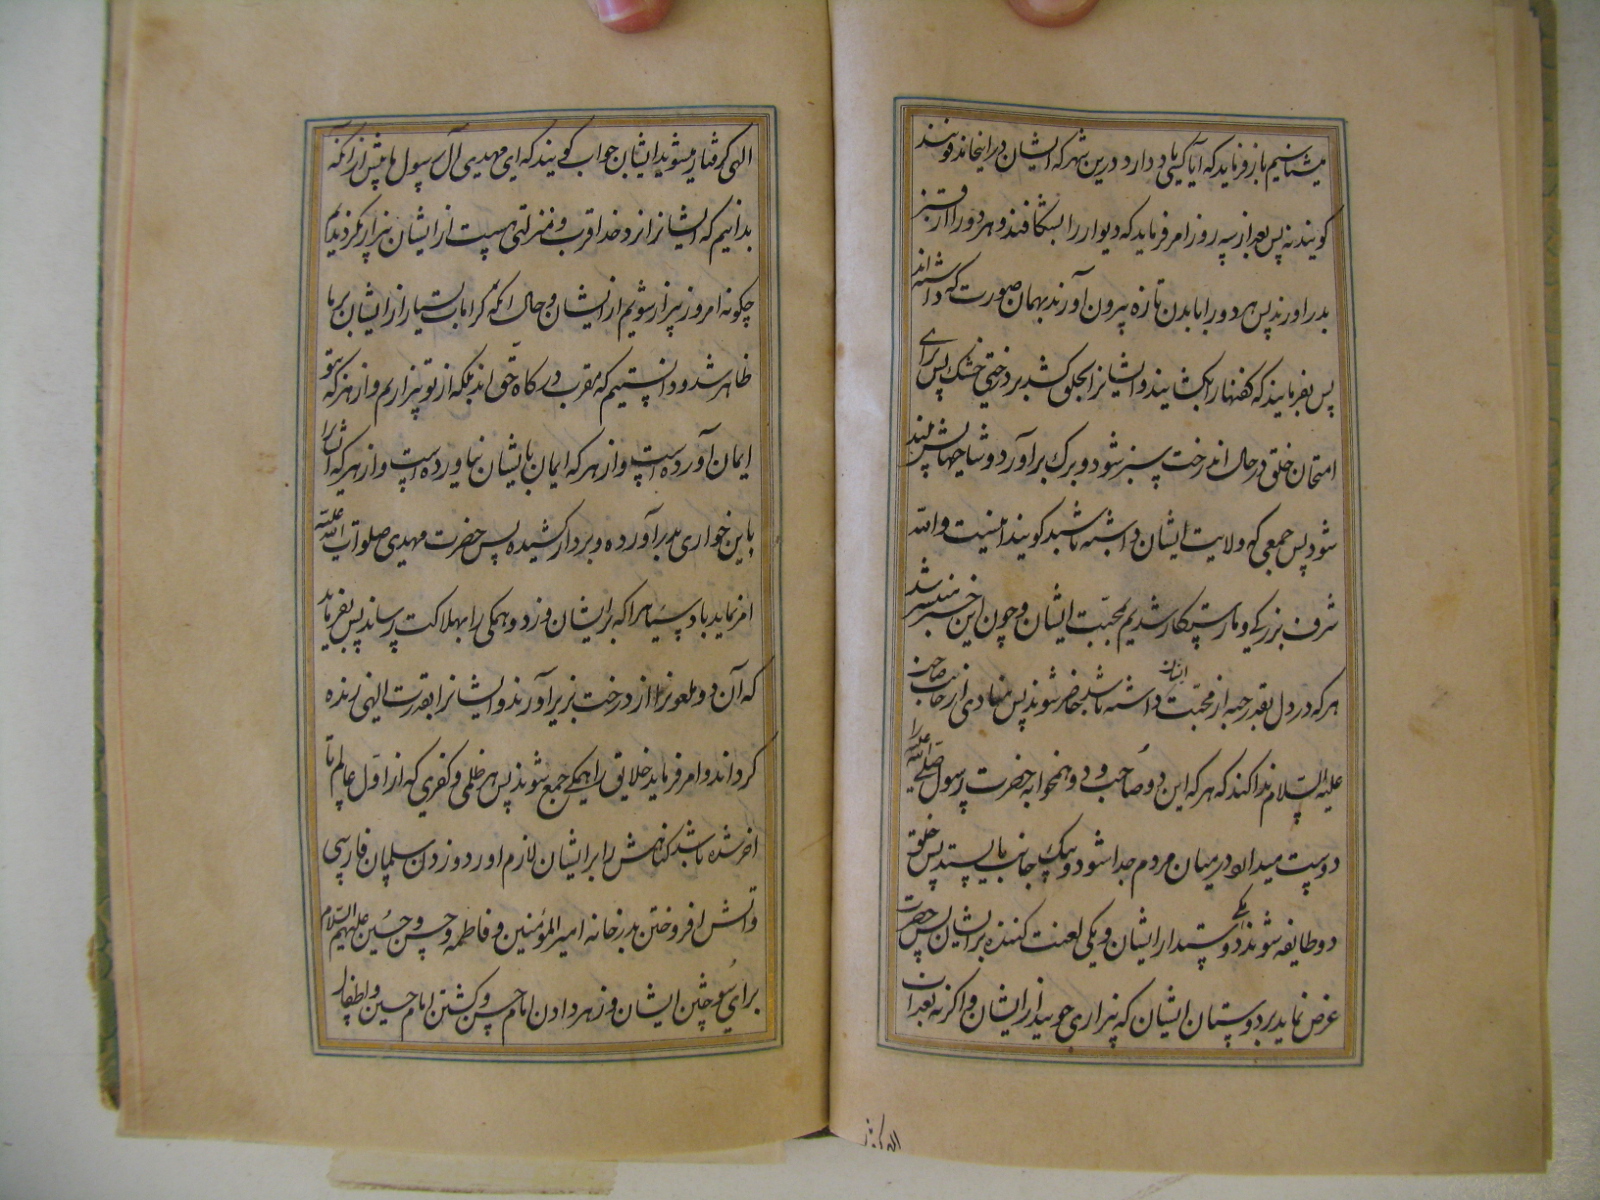 میشناسیم باز فرماید که آیا کسی یاد دارد درین شهر که ایشان در اینجا مدفونند
کویند نه پس بعد از سه روز امر فرماید که دیوار را بشکافند و هر دو را از قبر
بدر اورند پس هر دو را با بدن تازه بیرون آورند بهمان صورت که داشته‌اند
پس بفرمایند که کفنها را بکشایند و ایشانرا بحلق کشند بر درختی خشک پس برای
امتحان خلق در حال اندرخت سبز شود و برک برآورد و شاخهایش بلند
شود پس جمعی که ولایت ایشان داشته باشند کویند اینست والله
شرف بزرکی و ما رستکار شدیم بمحبّت ایشان و چون این خبر منتشر شد
هر که در دل بقدر حبه از محبّت ایشان داشته باشد حاضر شوند پس منادی از جانب صاحب
علیه السّلام ندا کند که هر که این دو صاحب و دو همخوابه حضرت رسول صلی الله علیه را
دوست میدارد از میان مردم جدا شود و بیک جانب بایستد پس خلق
دو طایفه شوند یکی دوستدار ایشان و یکی لعنت کننده بر ایشان پس حضرت
عرض نماید بر دوستان ایشان که بیزاری جویید از ایشان و اکرنه بعذاب
الهی کرفتار میشوید ایشان جواب کویند که ای مهدی آل رسول ما پیش از انکه
بدانیم که ایشانرا نزد خدا قرب و منزلتی هست از ایشان بیزار نکردیدیم
چکونه امروز بیزار شویم از ایشان و حال انکه کرامات بسیار از ایشان بر ما
ظاهر شد و دانستیم که مقرب درکاه حق اند بلکه از تو بیزاریم و از هر که بتو
ایمان آورده است و از هر که ایمان بایشان نیاورده است و از هر که ایشانرا
باین خواری بدر آورده و بر دار کشیده پس حضرت مهدی صلوات الله علیه
امر نماید باد سیاهرا که بر ایشان وزد و همکی را بهلاکت رساند پس بفرماید
که آن دو ملعونرا از درخت بزیر آورند و ایشانرا بقدرت الهی زنده
کرداند و امر فرماید خلایق را همکی جمع شوند پس هر ظلمی و کفری که از اوّل عالم تا
اخر شده باشد کناهش را بر ایشان لازم اورد و زدن سلمان فارسی
و اتش افروختن بدر خانه امیر المؤمنین و فاطمه و حسن و حسین علیهم السّلام
برای سوختن ایشان و زهر دادن امام حسن و کشتن امام حسین و اطفال
الهی کرفتار